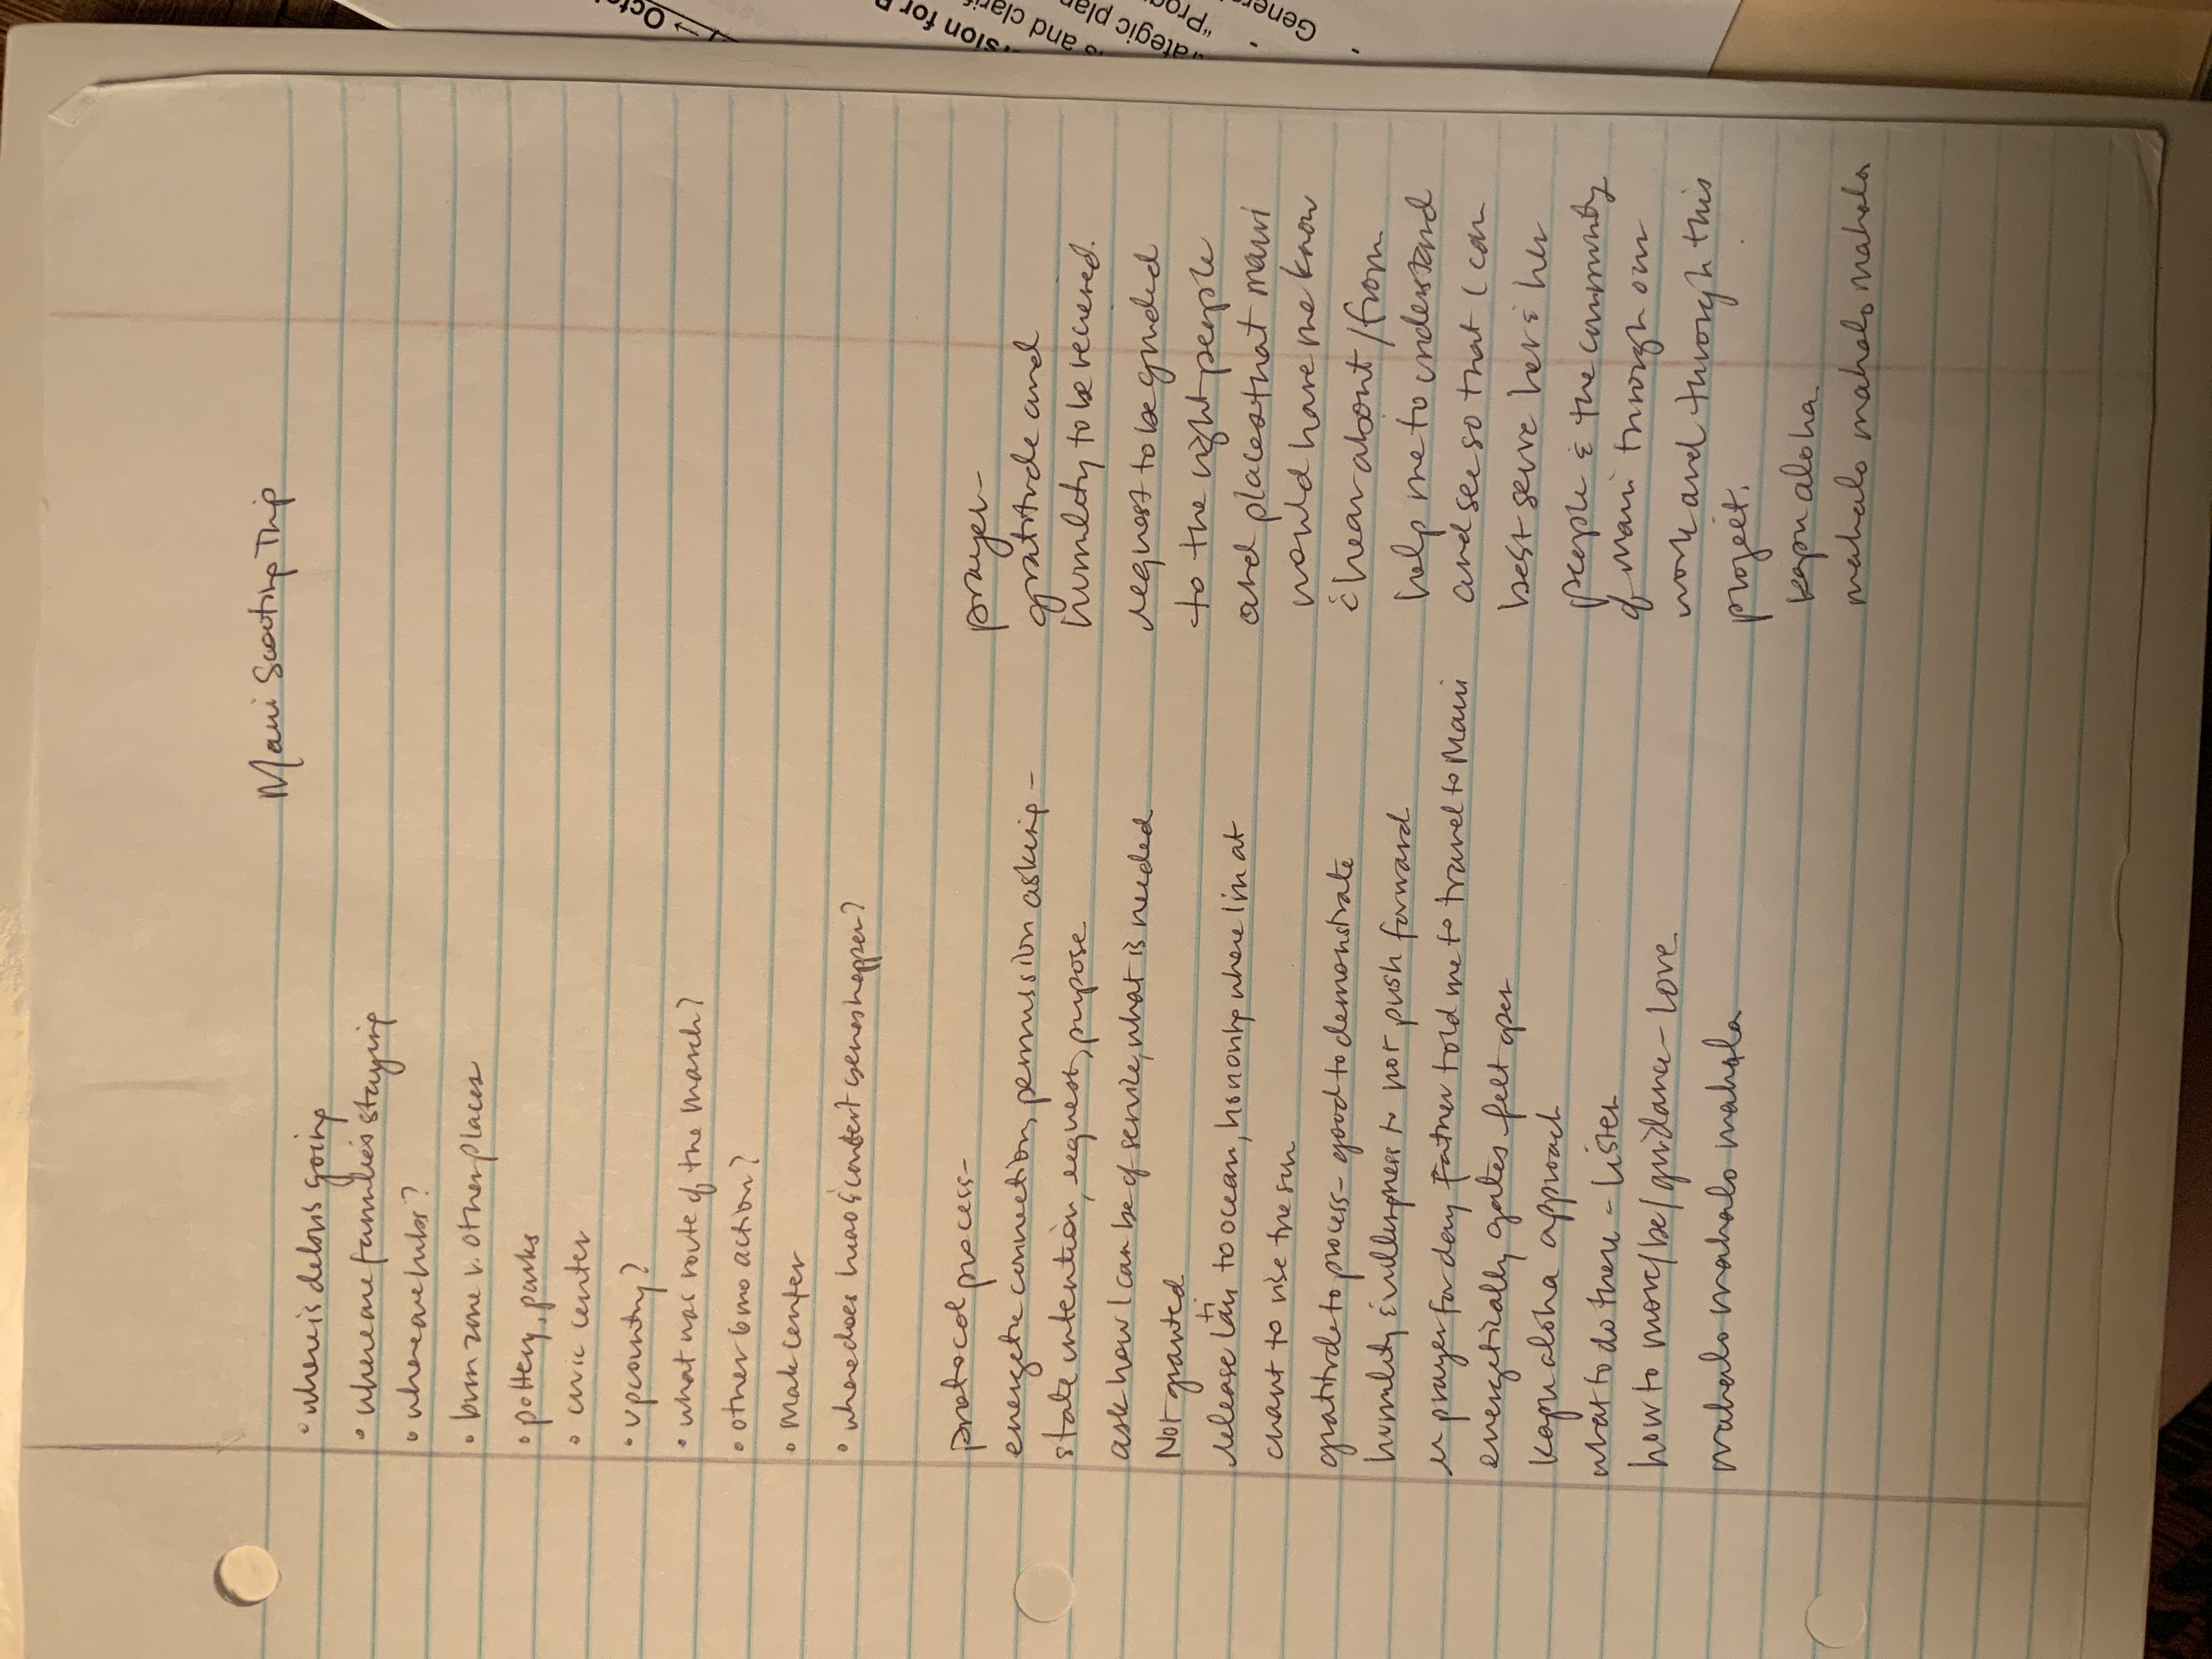 Maui Scouting Trip
• where is debris going
• where are families staying
• where are hubs?
• burn zone v. other places
• pottery, parks
• civic center
• upcountry?
• what was route of the march?
• other bmo action?
• mak center
• where does hmno & content scenes happen?
protocol process-
energetic connection, permission asking -
state intention, request, purpose
ask how I can be of service, what is needed
Not granted
release ti to ocean, honoring where I'm at
chant to rise the sun
gratitude to process - good to demonstrate
humility & willingness to not push forward
in prayer for day Father told me to travel to Maui
energetically gates felt open
kapu aloha approach
what to do there - listen
how to move/be/guidance - love
mahalo mahalo mahalo
prayer-
gratitude and
humility to be received.
request to be guided
to the right people
and places that maui
would have me know
& hear about / from
help me to understand
and see so that I can
best serve her & her
people & the community
of maui through our
work and through this
project.
kapu aloha
mahalo mahalo mahalo
Octob
sion for P
s and clarif
rategic plan
"Prog
Gener